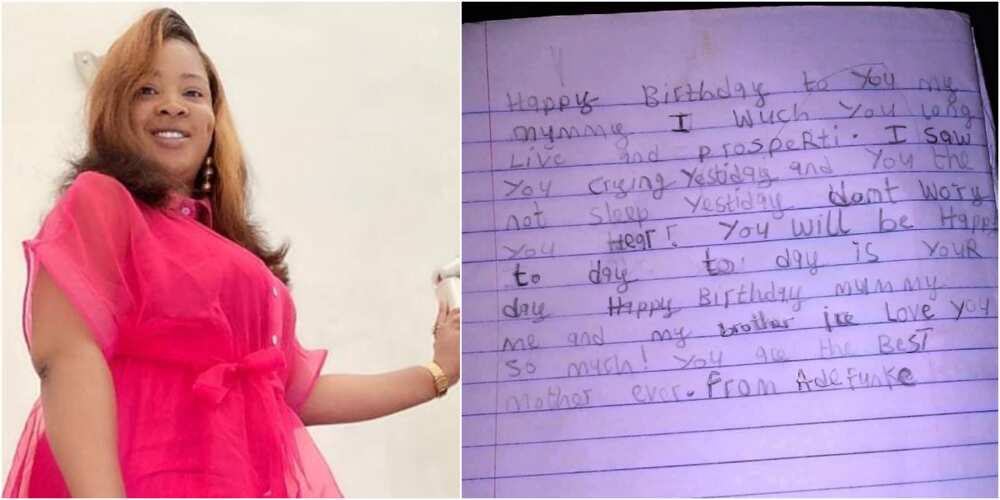 Happy Birthday to You my
mummy I wuch You long
Live and prospeRti. I saw
You crying Yestiday and You the
not sleep Yestiday dont wory
You Hear! You will be Happy
to day to day is YouR
day Happy Birthday mummy
me and my brother ire Love You
so much! You are the BesT
mother ever. From AdeFunke